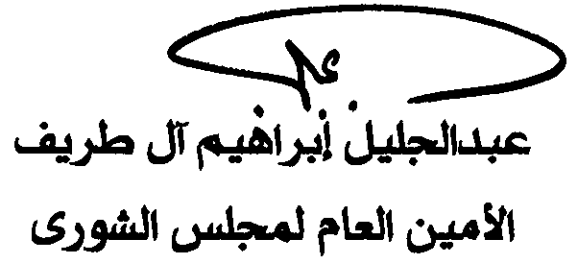 عبدالجليل إبراهيم آل طريف
الأمين العام لمجلس الشورى